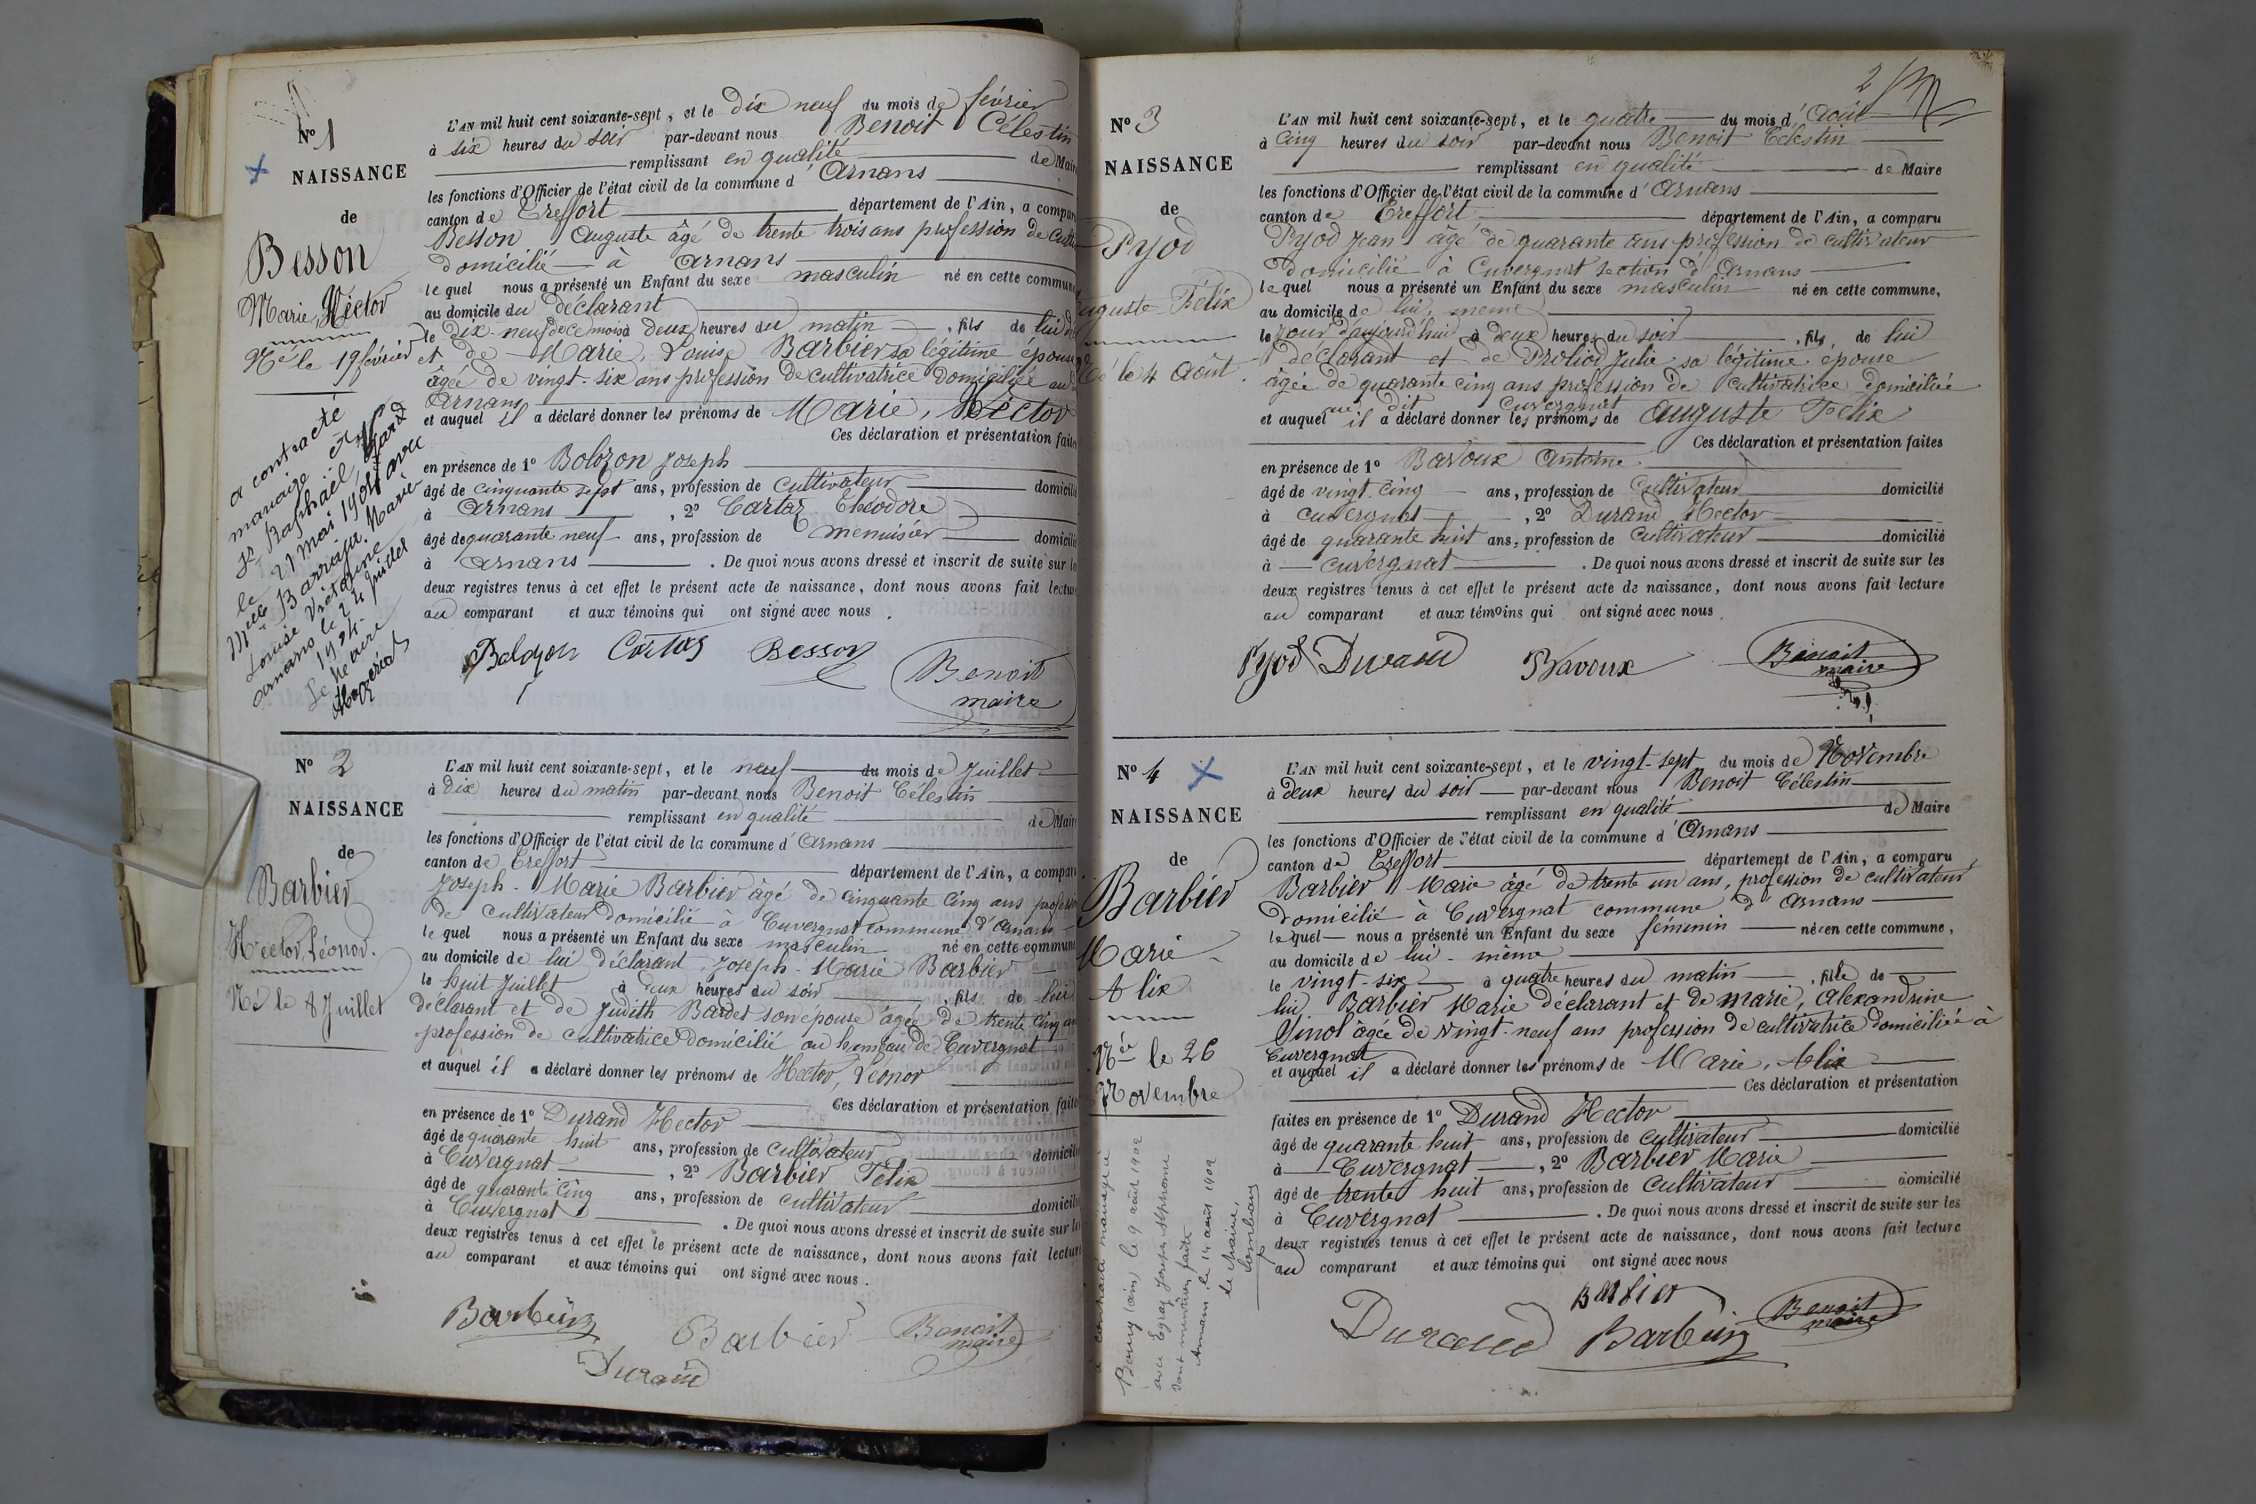 N° 1
NAISSANCE
de
Besson
Marie, Hector
Né le 19 février
a contracté
mariage à
St Raphaël
le 27 mai 1924 avec
Mlle Barriau Marie
Louise Victorine
Arnans le 24 juillet
1924.
Le Maire
L'AN mil huit cent soixante-sept, et le dix neuf du mois de février
à six heures du soir par-devant nous Benoit Célestin
remplissant en qualité de Maire
les fonctions d'Officier de l'état civil de la commune d'Arnans
canton de Treffort département de l'Ain, a comparu
Besson Auguste âgé de trente trois ans profession de
domicilié à Arnans
le quel nous a présenté un Enfant du sexe masculin né en cette commune
au domicile du déclarant
le dix-neuf de ce mois à deux heures du matin, fils de lui
et de Marie, Louise Barbier sa légitime épouse
âgée de vingt-six ans profession de cultivatrice domiciliée
Arnans
et auquel il a déclaré donner les prénoms de Marie, Hector
Ces déclaration et présentation faites
en présence de 1° Bolozon Joseph
âgé de cinquante sept ans, profession de cultivateur domicilié
à Arnans, 2° Cartaz Théodore
âgé de quarante neuf ans, profession de menuisier domicilié
à Arnans. De quoi nous avons dressé et inscrit de suite sur les
deux registres tenus à cet effet le présent acte de naissance, dont nous avons fait lecture
au comparant et aux témoins qui ont signé avec nous.
Bolozon Cartaz Besson
Benoit
maire
N° 2
NAISSANCE
de
Barbier
Hector, Léonor.
Né le 8 Juillet
L'AN mil huit cent soixante-sept, et le neuf du mois de Juillet
à dix heures du matin par-devant nous Benoit Célestin
remplissant en qualité de Maire
les fonctions d'Officier de l'état civil de la commune d'Arnans
canton de Treffort département de l'Ain, a comparu
Joseph-Marie Barbier âgé de cinquante cinq ans profession
de cultivateur domicilié à Cuvergnat commune d'Arnans
le quel nous a présenté un Enfant du sexe masculin né en cette commune
au domicile de lui déclarant, Joseph-Marie Barbier
le huit Juillet à deux heures du soir, fils de lui
déclarant et de Judith Bardet son épouse âgée de trente cinq ans
profession de cultivatrice domicilié au hameau de Cuvergnat
et auquel il a déclaré donner les prénoms de Hector, Léonor
Ces déclaration et présentation faites
en présence de 1° Durand Hector
âgé de quarante huit ans, profession de cultivateur domicilié
à Cuvergnat, 2° Barbier Félix
âgé de quarante cinq ans, profession de cultivateur domicilié
à Cuvergnat. De quoi nous avons dressé et inscrit de suite sur les
deux registres tenus à cet effet le présent acte de naissance, dont nous avons fait lecture
au comparant et aux témoins qui ont signé avec nous.
Barbier Barbier Benoit
maire
Durand
2
N° 3
NAISSANCE
de
Pyod
Auguste Félix
Né le 4 Août.
L'AN mil huit cent soixante-sept, et le quatre du mois d'Août
à cinq heures du soir par-devant nous Benoit Célestin
remplissant en qualité de Maire
les fonctions d'Officier de l'état civil de la commune d'Arnans
canton de Treffort département de l'Ain, a comparu
Pyod Jean âgé de quarante ans profession de cultivateur
domicilié à Cuvergnat section d'Arnans
le quel nous a présenté un Enfant du sexe masculin né en cette commune,
au domicile de lui même
le jour d'aujourd'hui à deux heures du soir, fils de lui
déclarant et de Julie sa légitime épouse
âgée de quarante cinq ans profession de cultivatrice domiciliée
au dit Cuvergnat
et auquel il a déclaré donner les prénoms de Auguste Félix
Ces déclaration et présentation faites
en présence de 1° Bavoux Antoine
âgé de vingt-cinq ans, profession de cultivateur domicilié
à Cuvergnat, 2° Durand Hector
âgé de quarante huit ans, profession de cultivateur domicilié
à Cuvergnat. De quoi nous avons dressé et inscrit de suite sur les
deux registres tenus à cet effet le présent acte de naissance, dont nous avons fait lecture
au comparant et aux témoins qui ont signé avec nous.
Pyod Durand Bavoux Benoit
maire
N° 4
NAISSANCE
de
Barbier
Marie
Alix
Née le 26
Novembre
a contracté mariage à
Bourg (Ain) le 9 août 1902
avec Joseph Alphonse
dont mention faite
Arnans, le 14 août 1902
Le Maire,
L'AN mil huit cent soixante-sept, et le vingt-sept du mois de Novembre
à deux heures du soir par-devant nous Benoit Célestin
remplissant en qualité de Maire
les fonctions d'Officier de l'état civil de la commune d'Arnans
canton de Treffort département de l'Ain, a comparu
Barbier Marie âgé de trente un ans, profession de cultivateur
domicilié à Cuvergnat commune d'Arnans
le quel nous a présenté un Enfant du sexe féminin né en cette commune,
au domicile de lui-même
le vingt-six à quatre heures du matin, fille de
lui Barbier Marie déclarant et de Marie, Alexandrine
Pinol âgée de vingt-neuf ans profession de cultivatrice domiciliée à
Cuvergnat
et auquel il a déclaré donner les prénoms de Marie, Alix
Ces déclaration et présentation
faites en présence de 1° Durand Hector
âgé de quarante huit ans, profession de cultivateur domicilié
à Cuvergnat, 2° Barbier Marie
âgé de trente huit ans, profession de cultivateur domicilié
à Cuvergnat. De quoi nous avons dressé et inscrit de suite sur les
deux registres tenus à cet effet le présent acte de naissance, dont nous avons fait lecture
au comparant et aux témoins qui ont signé avec nous
Barbier
Durand Barbier Benoit
maire